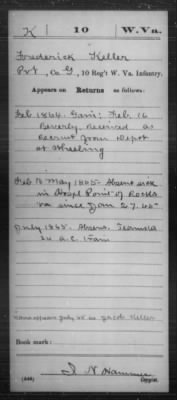 K 10 W.Va.
Frederick Keller
Pvt, Co G, 10 Reg't W. Va. Infantry.
Appears on Returns as follows:
Feb 1864. Gain: Feb 16
Beverly. Received as
Recruit from Depot
at Wheeling
Feb & May 1865. Absent sick
in Hospl Point of Rocks
Va since Jan 27. 65
July 1865. Absent. Teamster
24 A.C. Train
Name appears July 65 as Jacob Keller
Book mark:
(546)
Copyist.